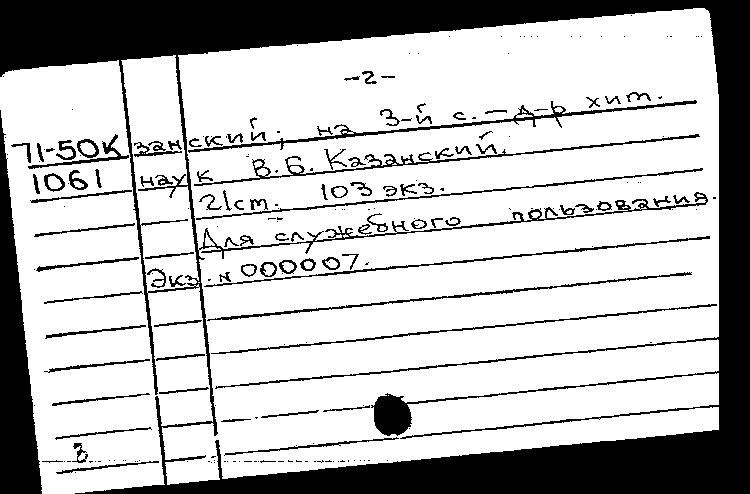 -2-
71-50К занский; на 3-й с. - д-р хит.
1061 наук В.Б. Казанский.
21 см. 103 экз.
Для служебного пользования.
Экз. № 000007.
3